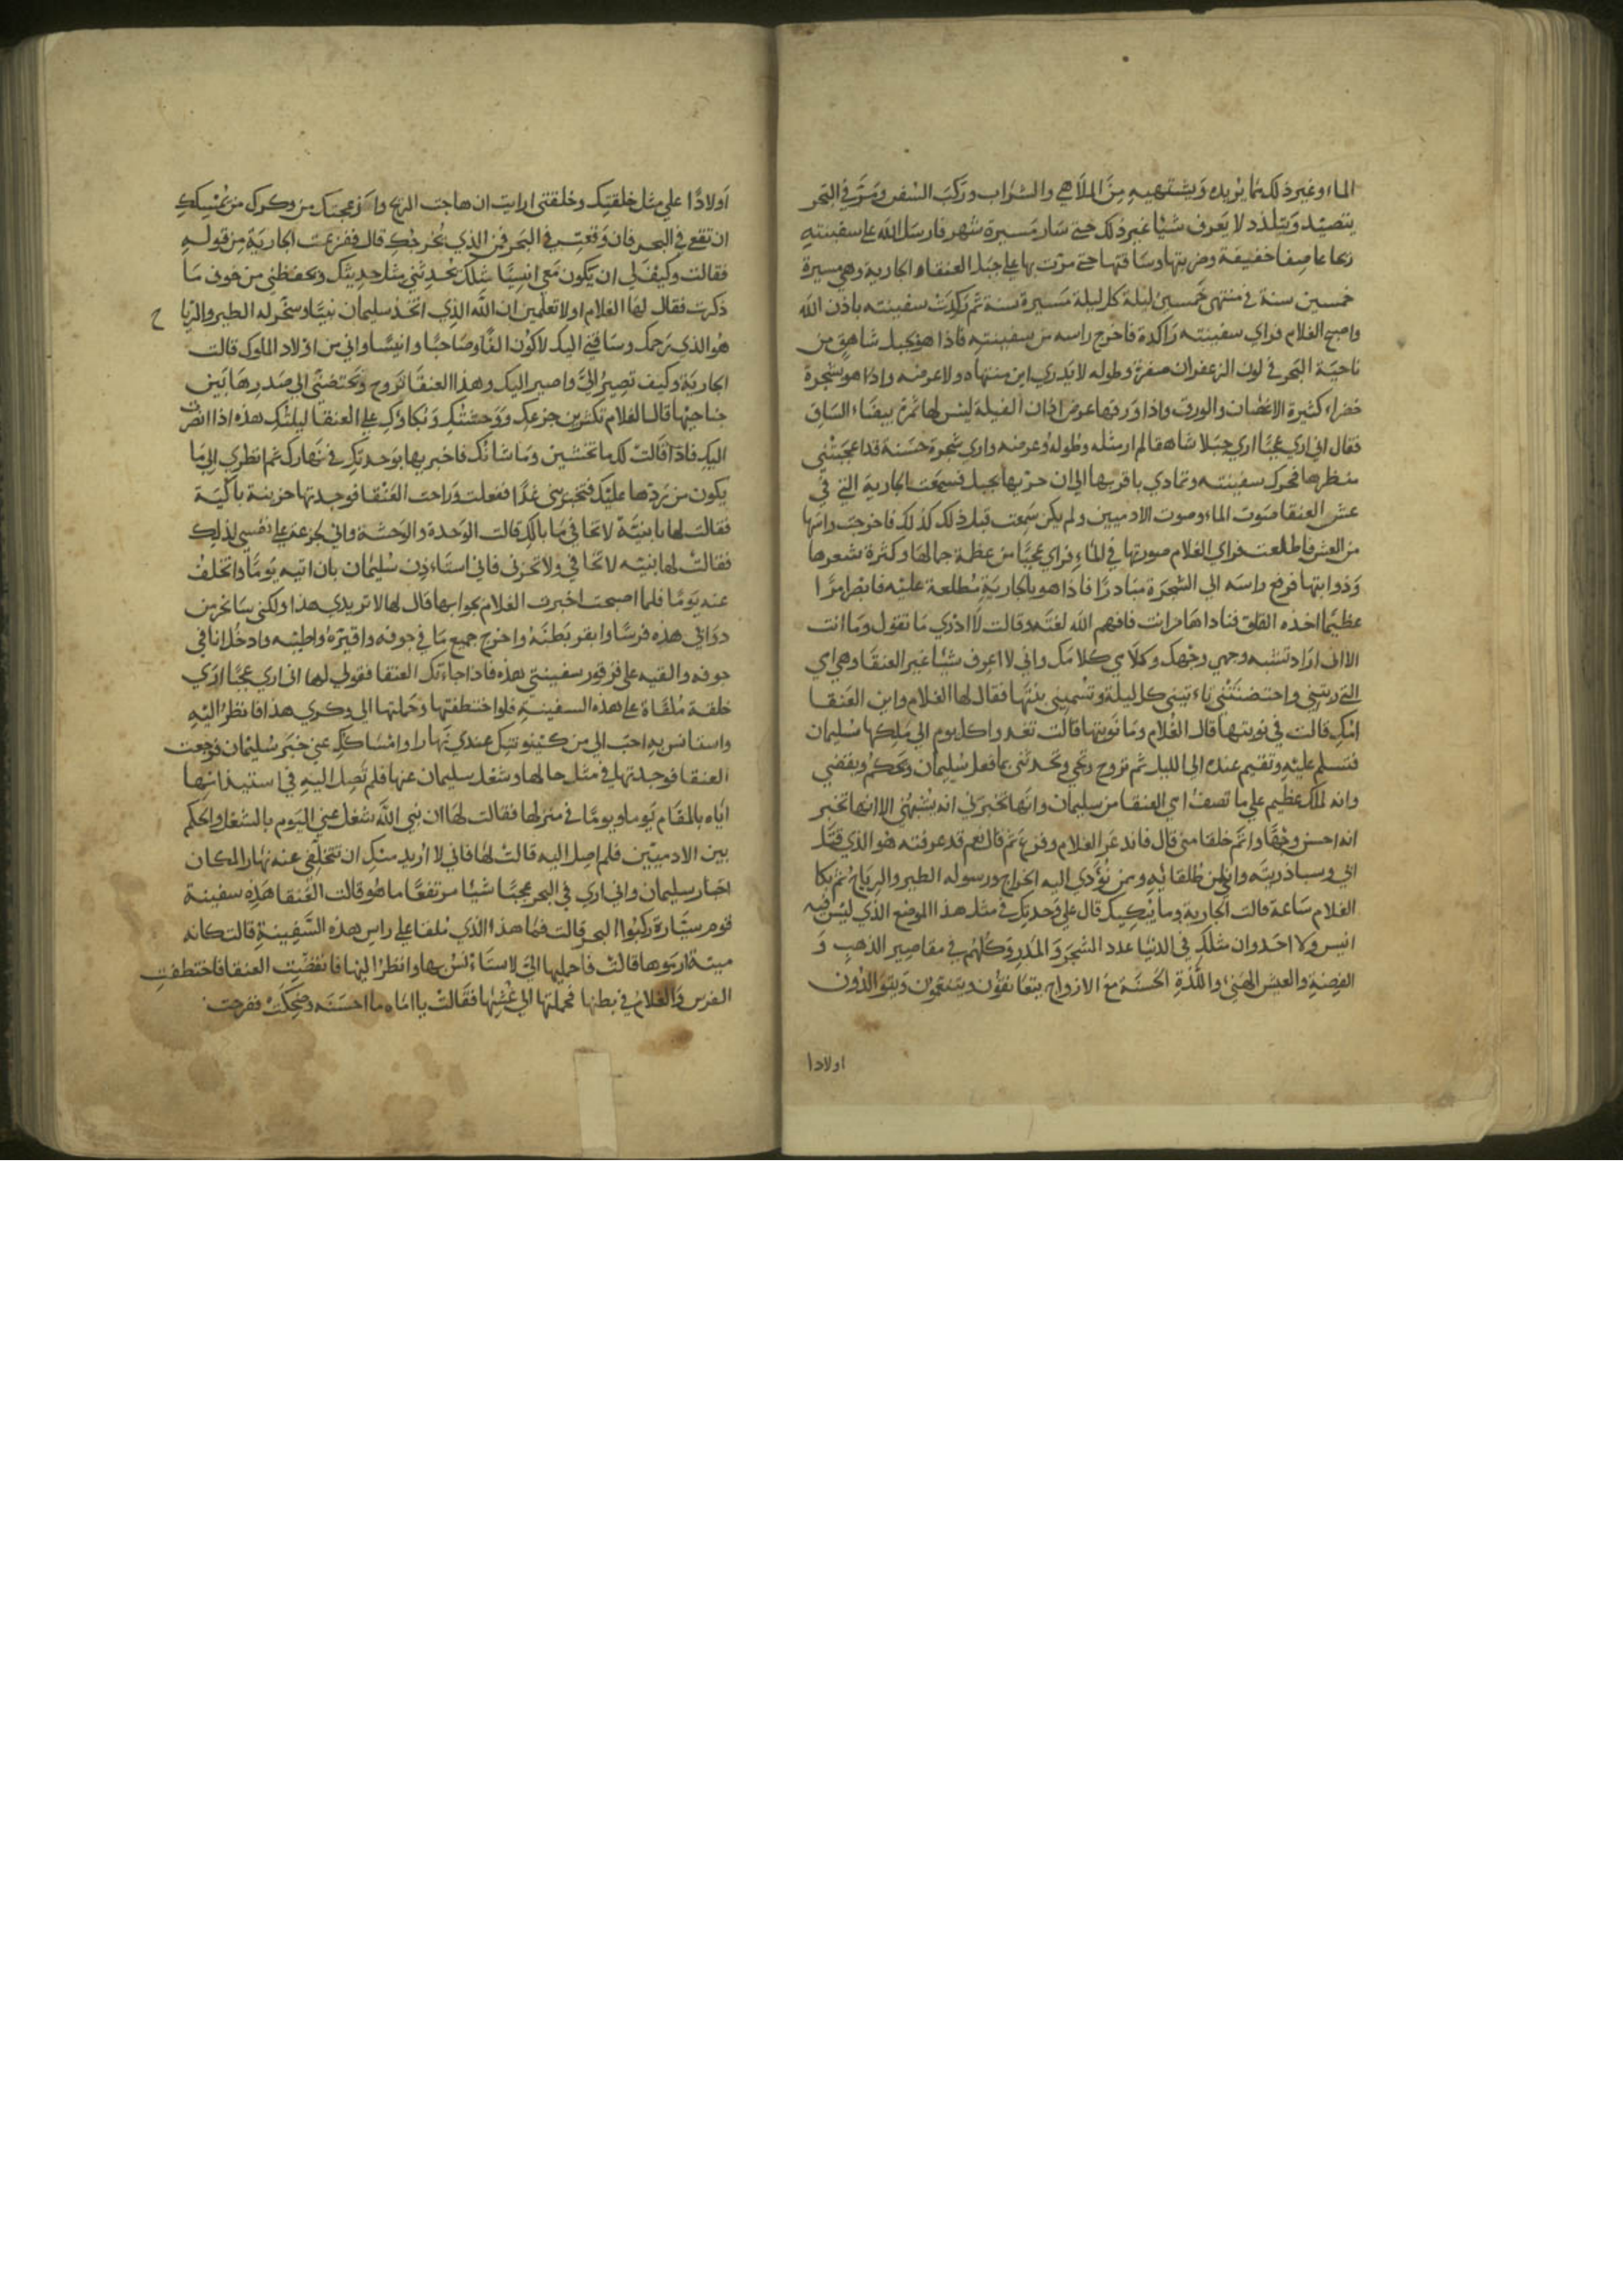 الماء وغير ذلك مما يريده ويشتهيه من الملاهي والشراب وركب السفن ومر في البحر
يتصيد ويتلذذ لا يعرف شيا غير ذلك حتى سار مسيرة شهر فارسل الله على سفينته
ريحا عاصفا خفيفة وضربتها وساقتها حتى مرت بها على جبل العنقاء الجارية وهي مسيرة
خمسين سنة في منتهى خمسين ليلة كل ليلة مسيرة سنة ثم ركدت سفينته باذن الله
واصبح الغلام فراي سفينته راكدة فاخرج راسه من سفينته فاذا هو بجبل شاهق من
ناحية البحر في لون الزعفران صفرة وطوله لا يدري اين منتهاه ولا عرضه واذا هو بشجرة
خضراء كثيرة الاغضان والورق واذا ورقها عرض اذان الفيلة ليس لها ثمرة بيضاء الساق
فقال اني اري عجبا اري جبلا شاهقا لم ار مثله وطوله وعرضه واري شجرة حسنة قد اعجبتني
منظرها فحرك سفينته وتمادي باقربها الى ان بها بجبل فسمعت الجارية التي في
عش العنقا صوت الماء وصوت الادميين ولم يكن سمعت قبل ذلك كذلك فاخرجت راسها
من العش فاطلعت فراي الغلام صورتها في الماء فراي عجبا من عظمة جمالها وكثرة شعرها
وذوابتها فرفع راسه الي الشجرة مبادرا فاذا هو بالجارية مطلعة عليه فابصر امرا
عظيما اخذه القلق فناداها من انت فافهم الله لغته وقالت لا ادري ما تقول وما انت
الا اني اراد تشبه وجهي وجهك وكلامي كلامك واني لا اعرف شيا غير العنقا وهي امي
التي ربتني واحتضنتني تاءتيني كل ليلة وتسميني بنتها فقال لها الغلام واين العنقا
امك قالت في نوبتها قال الغلام وما نوبتها قالت تغدوا كل يوم الى ملكها سليمان
فتسلم عليه وتقيم عنده الى الليل ثم تروح وتجي وتحدثني بما فعل سليمان وبحكم ويقضي
وانه لملك عظيم علي ما تصف امي العنقا من سليمان وانها تخبرني انه يشبهني الا انها تخبر
انه احسن وجها واتم خلقا مني قال فاندعر الغلام وفزع ثم قال نعم قد عرفته هو الذي قتل
ابي وسبا ذريته وانا من طلقائه وممن يؤدي اليه الخراج ورسوله الطير والرياح ثم بكا
الغلام ساعة قالت الجارية وما يبكيك قال علي وحدتك في مثل هذا الموضع الذي ليس فيه
انيس ولا احد وان مثلك في الدنيا عدد الشجر والمدر وكلهم في مقاصير الذهب و
الفضة والعيش الهني واللذة الحسنة مع الازواج يتعانقون ويتنعمون ويتوالدون
اولادا
اولادا علي مثل خلقتك وخلقتي ارايت ان هاجت الريح وازعجتك من وكرك من يمسيك
ان تقع في البحر فان وقعت في البحر فمن الذي يخرجك قال ففزعت الجارية من قوله
فقالت وكيف لي ان يكون معي انسيا مثلك يحدثني مثل حديثك ويحفظني من خوف ما
ذكرت فقال لها الغلام اولا تعلمين ان الله الذي اتخذ سليمان نبيا وسخر له الطير والريا ح
هو الذي رحمك وساقني اليك لاكون الفا وصاحبا وانيسا واني من اولاد الملوك قالت
الجارية وكيف تصير الي واصير اليك وهذا العنقا تروح وتحتضني الي صدرها بين
جناحيها قال الغلام تكثرين جزعك ووحشتك وبكاؤك علي العنقا ليلتك هذه اذا انصرفت
اليك فاذا قالت لك ما تخشين وما شانك فاخبريها بوحدتك في نهارك ثم انظري الي ما
يكون من ردها عليك فتخبريني غدا ففعلت وراحت العنقا فوجدتها حزينة باكية
فقالت لها يا بنية لا تخافي ما بالك قالت الوحدة والوحشة واني لجزعة على نفسي لذلك
فقالت لها بنيه لا تخافي ولا تحزني فاني استاءذن سليمان بان اتيه يوما واتخلف
عنه يوما فلما اصبحت اخبرت الغلام بجوابها قال لها لا تريدي هذا ولكني سانحر من
دوابي هذه فرسا وابقر بطنه واخرج جميع ما في جوفه واقيره واطيبه وادخل انا في
جوفه والقيه على قرقور سفينتي هذه فاذا جاءتك العنقا فقولي لها اني اري عجبا اري
خلقة ملقاة على هذه السفينة فلو اختطفتها وحملتها الي وكري هذا فانظر اليه
واستانس به احب الي من كينونتك عندي نهارا وامساكك عني خبر سليمان فرجعت
العنقا فوجدتها في مثل حالها وشغل سليمان عنها فلم تصل اليه في استيذانها
اياه بالمقام يوما ويوما في منزلها فقالت لها ان نبي الله شغل عني اليوم بالشغل والحكم
بين الادميين فلم اصل اليه قالت لها فاني لا اريد منك ان تتخلفي عنه نهارا لمكان
اخبار سليمان واني اري في البحر عجبا شيا مرتفعا ما هو قالت العنقا هذه سفينة
قوم سيارة ركبوا البحر قالت فما هذا الذي ملقا علي راس هذه السفينة قالت كانه
ميتة رموها قالت فاحمليها الي لاستاءنس بها وانظر اليها فانقضت العنقا فاختطفت
الفرس والغلام في بطنها فحملتها الي عشها فقالت يا اماه ما احسنه وضحكت ففرحت